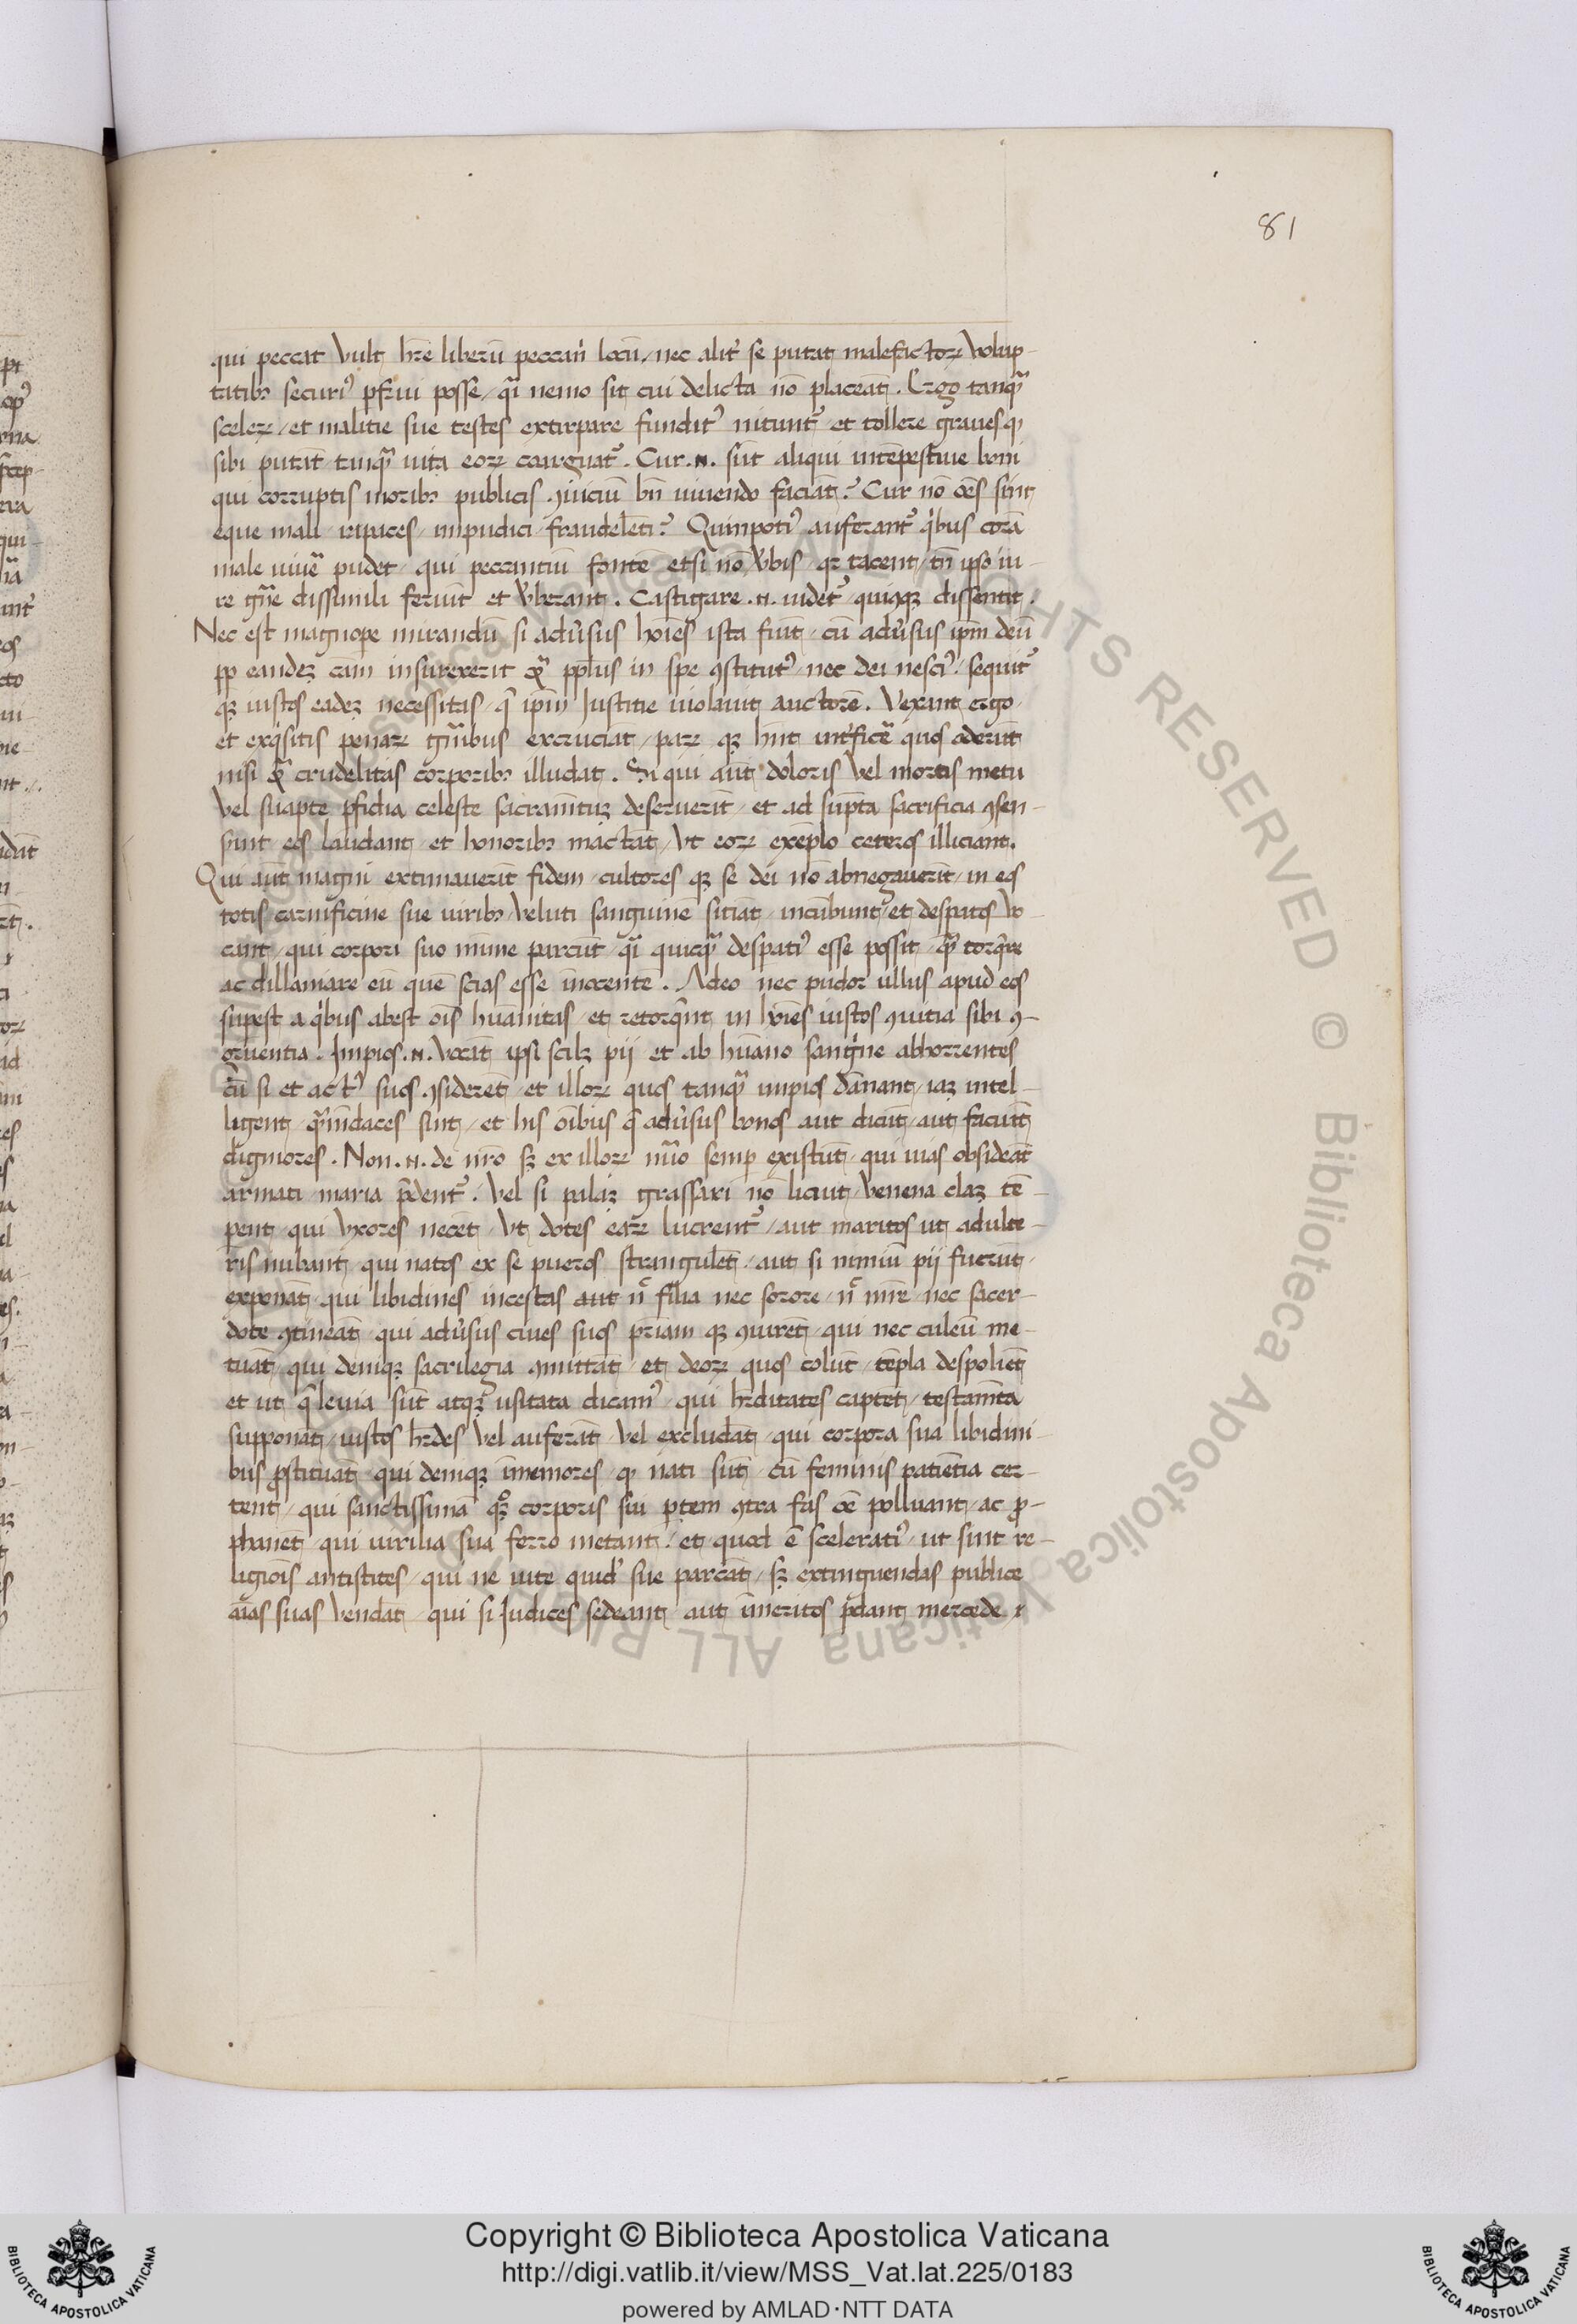 81
qui peccat vult hr̄e liberū peccan̄i locū / nec alit͛ se putat malefactoꝝ volup-
tatibꝫ securiꝰ pfrui posse / qͣꝫ nemo sit cui delicta nō placeāt . Ergo tanqͣꝫ
sceleꝝ / et malitie sue testes extirpare funditꝰ nitunt͛ et tollere graues qꝫ
sibi putāt tanqͣꝫ uita eoꝝ coarguat͛ . Cur .n. sūt aliqui intēpestiue boni
qui corruptis moribꝫ publicis ꝯuiciū bn̄ uiuendo faciāt ? Cur nō oēs sint
eque mali rapaces / impudici / fraudelēti ? Quinpotiꝰ auferant͛ qͥbus corā
male uiuͤe pudet / qui peccantiū fontē etsi nō v͛bis / qꝛ tacent / tn̄ ipso ui-
te gn̄e dissimili feriūt et v͛berant . Castigare .n. uidet͛ quicꝗꝫ dissentit .
Nec est magnope mirandū si adu͛sus hoīes ista fiūt / cū adu͛sus ip̄m deū
pp eandeꝫ cām insurexerit qͣꝫ ppl̄us in spe ꝯstitutꝰ / nec dei nesciꝰ / sequit͛
qꝫ iustos eadeꝫ necessitas / q̄ ip̄m Justitie uiolauit auctorē . Vexant ergo
et exqͥsitis penaꝝ gn̄ibus excruciāt / paꝝ qꝫ hn̄t int͛ficͤe quos oderūt
nisi qͣꝫ crudelitas corporibꝫ illudat . Si qui aūt doloris vel mortis metu
vel suapte pfidia celeste sacram̄tuꝫ deseruerīt / et ad sūpta sacrificia ꝯsen-
sīnt eos laudant et honoribꝫ mactāt / vt eoꝝ exēplo ceteros illiciant .
Qui aūt magni extimauerīt fidem / cultores qꝫ se dei nō abnegauerīt / in eos
totis carnificine sue uiribꝫ / veluti sanguinē sitiāt / incūbunt / et despatos vo
cant / qui corpori suo mīme parcūt / qͣꝫ quicqͣꝫ despatiꝰ esse possit / qͣꝫ torqͥre
ac dillaniare eū quē scias esse inocentē . Adeo nec pudor ullus apud eos
supest a qͥbus abest oīs huāitas / et retorqͥnt in hoīes iustos ꝯuitia sibi ꝯ-
gruentia . Impios .n. vocāt ipsi scilꝫ pij et ab hūano sangͥne abhorrentes
cū si et actꝰ suos ꝯsiderēt / et illoꝝ quos tanqͣꝫ impios dānant / iaꝫ intel-
ligent / qͣꝫ mēdaces sint / et his oībus q̄ adu͛sus bonos aut dicūt / aut faciūt
digniores . Non .n. de nr̄o sꝫ ex illoꝝ nūo semp existūt / qui uias obsideāt
armati / maria pͤdent͛ . vel si palaꝫ grassari nō licuit / venena claꝫ tē-
pent / qui vxores necēt / vt dotes eaꝝ lucrent͛ / aut maritos ut adulte-
ris nubant / qui natos ex se pueros strangulēt / aut si nimiū pij fuerūt /
exponāt / qui libidines incestas aut nͨ filia nec sorore / nͨ mr̄e / nec sacer-
dote ꝯtineāt / qui adu͛sus ciues suos pr̄iam qꝫ ꝯiurēt / qui nec culeū me-
tuāt / qui deniqꝫ sacrilegia ꝯmittāt / et deoꝝ quos colūt / tēpla despoliēt
et ut q̄ leuia sūt atqꝫ usitata dicamꝰ / qui hr̄ditates captēt / testamēta
supponāt / iustos hr̄des vel auferāt / vel excludāt / qui corpora sua libidini-
bus ꝓstituāt / qui deniqꝫ īmemores / qꝫ nati sūt / cū feminis patiētia cer-
tent / qui sanctissimā qꝫ corporis sui ptem ꝯtra fas oē polluant / ac ꝓ-
phanēt / qui uirilia sua ferro metant / et quod ē sceleratiꝰ / ut sint re-
ligiōis antistites / qui ne uite quidē sue parcāt / sꝫ extinguendas publice
aīas suas vendāt / qui si Judices sedeant aut īmeritos pͤdant mercede r
Copyright © Biblioteca Apostolica Vaticana
http://digi.vatlib.it/view/MSS_Vat.lat.225/0183
powered by AMLAD·NTT DATA
BIBLIOTECA APOSTOLICA VATICANA
BIBLIOTECA APOSTOLICA VATICANA
© Biblioteca Apostolica Vaticana ALL RIGHTS RESERVED